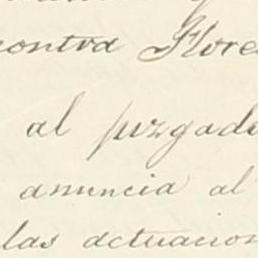 contra Flore
al juzgado
anuncia al
las actuacion